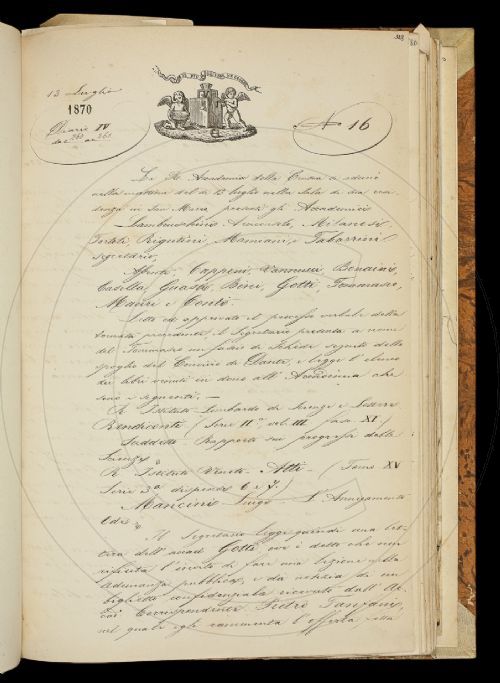 13 Luglio
1870
Diario IV
N 16
La R. Accademia della Crusca si adunò
nella mattina del dì 13 luglio nella Sala di sua resi
denza in San Marco, presenti gli Accademici
Lambruschini Arciconsolo, Milanesi,
Tortoli, Rigutini, Mamiani, e Tabarrini
segretario.
Assenti Capponi, Vannucci, Bonaini,
Casella, Guasti, Bini, Gotti, Tommaseo,
Mauri e Conti.
Letto ed approvato il processo verbale della
tornata precedente, il Segretario presenta a nome
del Tommaseo un fascio di schede seguito dello
spoglio del Convivio di Dante, e legge l'elenco
dei libri venuti in dono all'Accademia che
sono i seguenti. —
R. Istituto Lombardo di Scienze e Lettere
Rendiconti (Serie II, vol. III fasc. XI)
Suddetto Rapporti sui progressi delle
Scienze
R. Istituto Veneto Atti - (Tomo XV
Serie 3a dispensa 6 e 7.)
Mancini Luigi L'Annegamento
Ode
Il Segretario legge quindi una let-
tera dell'accad. Gotti ove è detto che non
rifiuta l'invito di fare una lezione nella
adunanza pubblica, e dà notizia di un
biglietto confidenziale ricevuto dall'Ac
cad. Corrispondente Pietro Fanfani,
nel quale egli rammenta l'offerta fatta